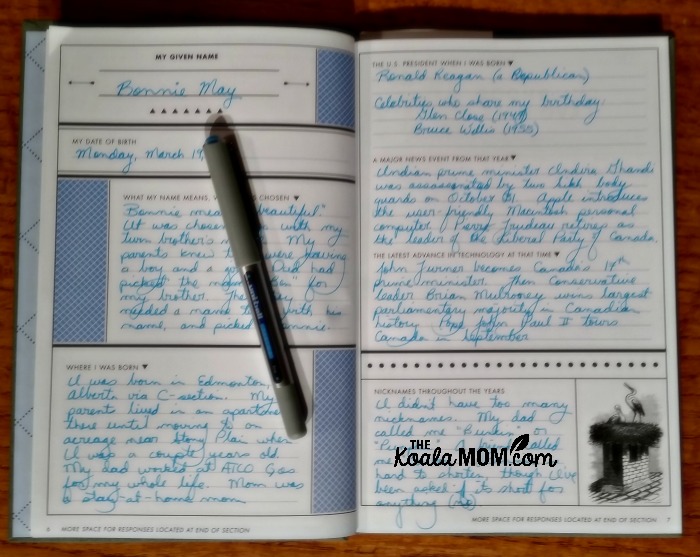 MY GIVEN NAME
Bonnie May
MY DATE OF BIRTH
Monday, March 19,
WHAT MY NAME MEANS, W CHOSEN ▼
Bonnie mea "beautiful."
It was chosen with my
twin brother's n My
parents knew were having
a boy and a g Dad had
picked the na "Ben" for
my brother. The
needed a name th with his
name, and picked onnie.
WHERE I WAS BORN ▼
I was born in Edmonton,
Alberta via C-section. My
parents lived in an apartme
there until moving to an
acreage near Stony Plain when
I was a couple years old.
My dad worked at ATCO Gas
for my whole life. Mom was
a stay-at-home mom.
6 MORE SPACE FOR RESPONSES LOCATED AT END OF SECTION
THE U.S. PRESIDENT WHEN I WAS BORN ▼
Ronald Reagan (a Republican)
Celebrities who share my birthday:
Glen Close (1947)
Bruce Willis (1955)
A MAJOR NEWS EVENT FROM THAT YEAR ▼
Indian prime minister Indira Ghandi
was assassinated by two Sikh body
guards on October 31. Apple introduces
the user-friendly Macintosh personal
computer. Pierre Trudeau retires as
the leader of the Liberal Party of Canada.
THE LATEST ADVANCE IN TECHNOLOGY AT THAT TIME ▼
John Turner becomes Canada's 17th
prime minister. Then Conservative
leader Brian Mulroney wins largest
parliamentary majority in Canadian
history. Pope John Paul II tours
Canada in September
NICKNAMES THROUGHOUT THE YEARS
I didn't have too many
nicknames. My dad
called me or
A friend called
me
hard to shorten, though I've
been asked if it's short for
anything (no)
THE
KoalaMOM.com
MORE SPACE FOR RESPONSES LOCATED AT END OF SECTION 7